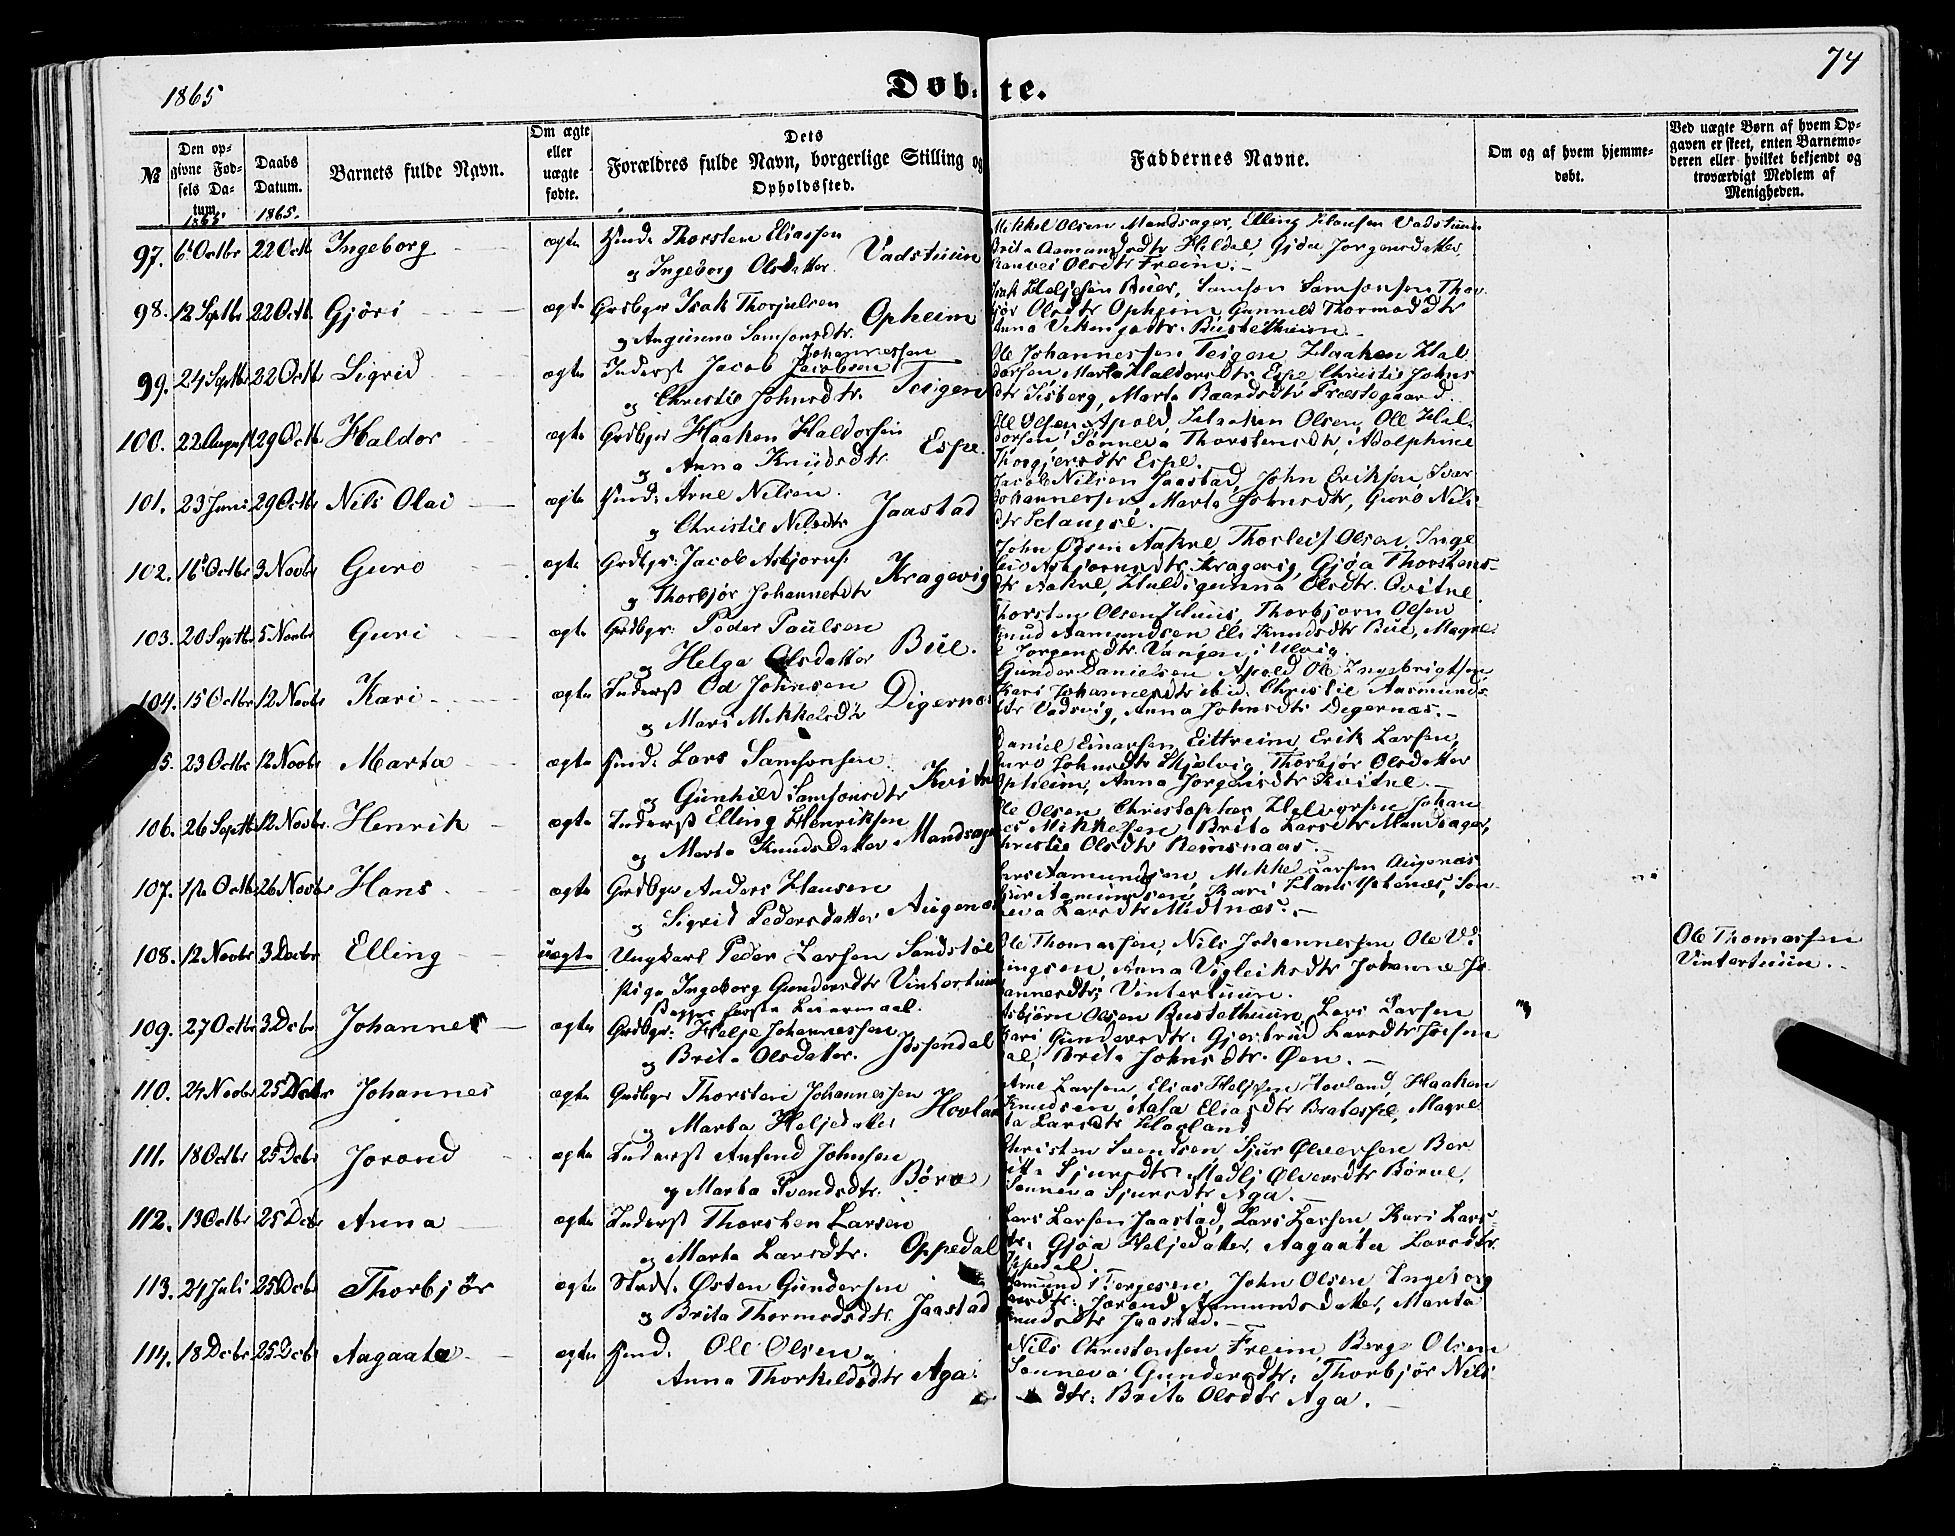 74
1865
Døbte.
№
Den opgivne Fødsels Datum.
1865
Daabs Datum.
1865.
Barnets fulde Navn.
Om ægte eller uægte fødte.
Dets Forældres fulde Navn, borgerlige Stilling og Opholdssted.
Faddernes Navne.
Om og af hvem hjemmedøbt.
Ved uægte Børn af hvem Opgaven er skeet, enten Barnemoderen eller hvilket bekjendt og troværdigt Medlem af Menigheden.
97. 6 Octbr 22 Octb Ingeborg ægte Huusm: Thorsten Eliassen
og Ingeborg Olsdatter. Vadstuun
Mikkel Olsen Mandsager, Elling Hansen Vadstuun
Brita Aamundsdtr Hildal, Gjøa Jørgensdatter,
Olsdtr Freim.
98. 12 Septbr 22 Octb. Gjøri ægte Grdbgr Isak Thorjulsen
og Angunna Samsonsdtr. Opheim
Isak Heljesen Buer, Samson Samsonsen Thor
bjør Olsdtr Opheim, Gunnild Thormodsdtr
Anna Vikingsdtr. Bustethuun.
99. 24 Septbr 22 Octb Sigrid ægte Inderst Jacob Johannessen Jacobsen
og Christie Johnsdtr. Teigen
Ole Johannessen Teigen, Haaken Hal
dorsen, Marta Haldorsdtr Espe, Christie Johns
dtr Tisberg, Marta Baardsdtr Præstegaard.
100. 22 August 29 Octb Haldor ægte Grdbgr Haaken Haldorsen
og Anna Knudsdtr Espe.
Ole Olsen Apold, Haaken Olsen, Ole Hal
dorsen, Sønneva Thorstensdtr, Adolphine
Thorgjersdtr Espe.
101. 23 Juni 29 Octbr Nils Olai ægte Huusm: Arne Nilsen
og Christie Nilsdtr Jaastad
Jacob Nilsen Jaastad, John Eriksen, Ivar
Johannessen, Marta Johnsdtr, Guro Nils
dtr
102. 16 Octbr 3 Novbr Guro ægte Grdbgr: Jacob Asbjørns:
og Thorbjør Johannesdtr Kragevig
John Olsen Aakre, Thorleif Olsen, Inge
leiv Asbjørnsdtr Kragevig, Gjøa Thorstens
dtr Aakre, Huldigunna Olsdtr. Qvitne.
103. 20 Septbr 5 Novbr Guri ægte Grdbgr: Peder Paulsen
og Helga Olsdatter Bue.
Thorsten Olsen Huus, Thorbjørn Olsen
Knud Aamundsen Eli Knudsdtr Bue, Magre
te Jørgensdtr. Vangen i Ulvig.
104. 15 Octbr 12 Novbr Kari ægte Inderst Od Johnsen
og Mari Mikkelsdtr Digernæs
Gunder Danielsen Apold Ole Ingebrigtsen
Kari Johannesdtr ibid. Christie Aasmunds
dtr Vadsvig, Anna Johnsdtr Degernæs.
105. 23 Octbr 12 Novbr Marta ægte Huusm: Lars Samsonsen
og Gunhild Samsonsdtr Kvitne
Daniel Einarsen Eittreim Erik Larsen,
Guro Johnsdtr Skjælvig Thorbjør Olsdatter
Opheim, Anna Jørgensdtr Kvitne.
106. 26 Septbr 12 Novbr. Henrik ægte Inderst Elling Henriksen
og Marta Knudsdatter Mandsager
Ole Olsen Christopher Halvorsen Johan
nes Mikkelsen Brita Larsdtr Mandsager,
Christie Olsdtr Reinsnaas.
107. Octb 26 Novbr Hans ægte Grdbgr Anders Hansen
og Sigrid Pedersdatter Augenæs
Lars Aamundsen, Mikkel Larsen Augenæs
Sjur Aamundsen Kari Hansdtr Son
neva Larsdtr Midtnæs.
108. 12 Novbr 3 Decbr Elling uægte Ungkarl Peder Larsen Sandstøl
Pige Ingeborg Gundersdtr Vintertuun
Begges første Leiermaal.
Ole Thomassen, Nils Johannessen Ole Vi
kingsen, Anna Vigleiksdtr Johanne Jo
hannesdtr; Vintertuun.
Ole Thomassen
Vintertuun.
109. 27 Octbr 3 Decbr Johannes ægte Grdbgr: Helje Johannessen
og Brita Olsdatter. Jøssendal
Asbjørn Olsen Bustethuun, Lars Larsen
Kari Gundersdtr. Gjertrud Larsdtr Jøssen
dal, Brita Johnsdtr. Øen.
110. 24 Novbr 25 Decbr Johannes ægte Grdbgr Thorsten Johannessen
og Marta Heljedatter Hovland
Arne Larsen, Elias Heljesen Hovland, Haaken
Knudsen, Eliasdtr Bratespe, Magre
ta Larsdtr Hovland
111. 18 Octbr 25 Decbr Jorand ægte Inderst Anfind Johnsen
og Marta Svendsdtr. Børve
Christen Svendsen, Sjur Olversen Ber
Sjursdtr. Madli Olversdtr Børve,
Sonneva Sjursdtr Aga.
112. 13 Octbr 25 Decbr Anna ægte Inderst Thorsten Larsen
og Marta Larsdtr. Oppedal
Lars Larsen Jaastad, Lars Larsen, Kari Lars
dtr. Gjøa Heljedatter, Aagaata Larsdtr
Oppedal.
113. 24 Juli 25 Decbr Thorbjør ægte Strds. Østen Gundersen
og Brita Thormodsdtr. Jaastad
Aamund Torgesen, John Olsen Ingeborg
Jorand Aamundsdatter, Marta
Knudsdtr Jaastad.
114. 18 Decbr 25 Decbr Aagaata ægte Huusm: Ole Olsen og
Anna Thorkildsdtr Aga.
Nils Christensen Freim, Berge Olsen
Sonneva Gundersdtr: Thorbjør Nils
dtr: Brita Olsdtr Aga.